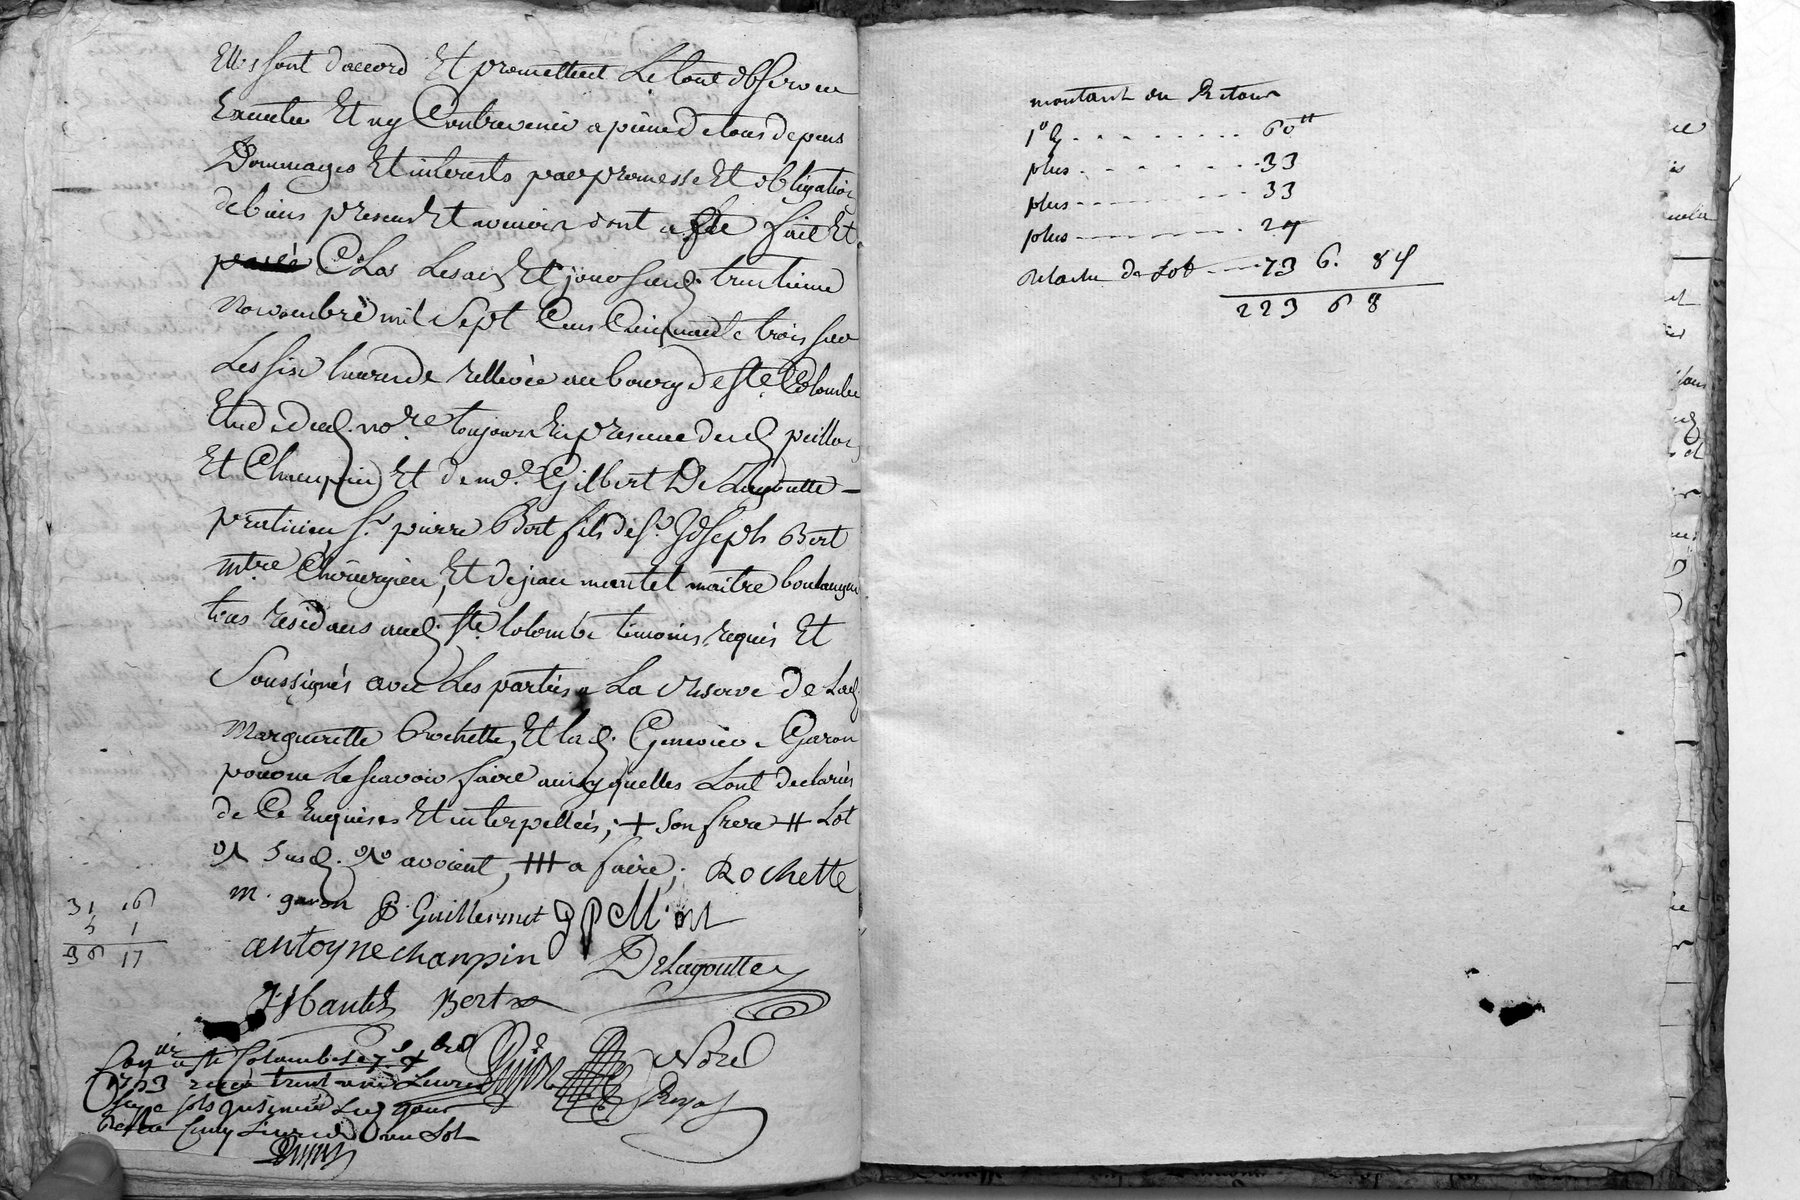 Elles sont d'accord Et promettent Le tout observer
Executer Et ny Contrevenir a peine de tous depens
Dommages Et interests par promesse Et obligation
de biens presens Et avenir dont acte fait Et
passé Clos Lesdits Et jour Jeudy trentieme
Novembre mil Sept Cens Cinquante trois sur
Les six heures de rellevée au bourg de Ste Colombe
Etude dud. nore toujours En presence desd. peillon
Et Champin Et de me. Gilbert De Lagoutte
praticien Sr. pierre Bert fils de Sr. Joseph Bert
mtre Chirurgien, Et de jean mantel maitre boulanger
tous residans aud. Ste Colombe temoins requis Et
Soussignés avec Les parties a La reserve de Lad.
Margueritte Rochette, Et lad. Genevieve Garon
pour ne le scavoir faire ainsy quelles Lont declarés
de Ce Enquises Et interpellées; + son frere ++ Lot
avoient, +++ a faire; Rochette
m. garon Guillermet
antoyne chanpin Delagoutte
Mantel Bert
31 16
5 1
36 17
Conlle a Ste Colombe Le 7e xbre
1753 recu trent une Livres
seize sols
Cinq Livres un sol
Nore
Royal
montant du Retour
60 ᵗᵗ
plus . . . . . . 33
plus - - - - - - 33
plus - - - - - - 24
de Lot - - - 73 6. 8 ꝺ
223 6 8